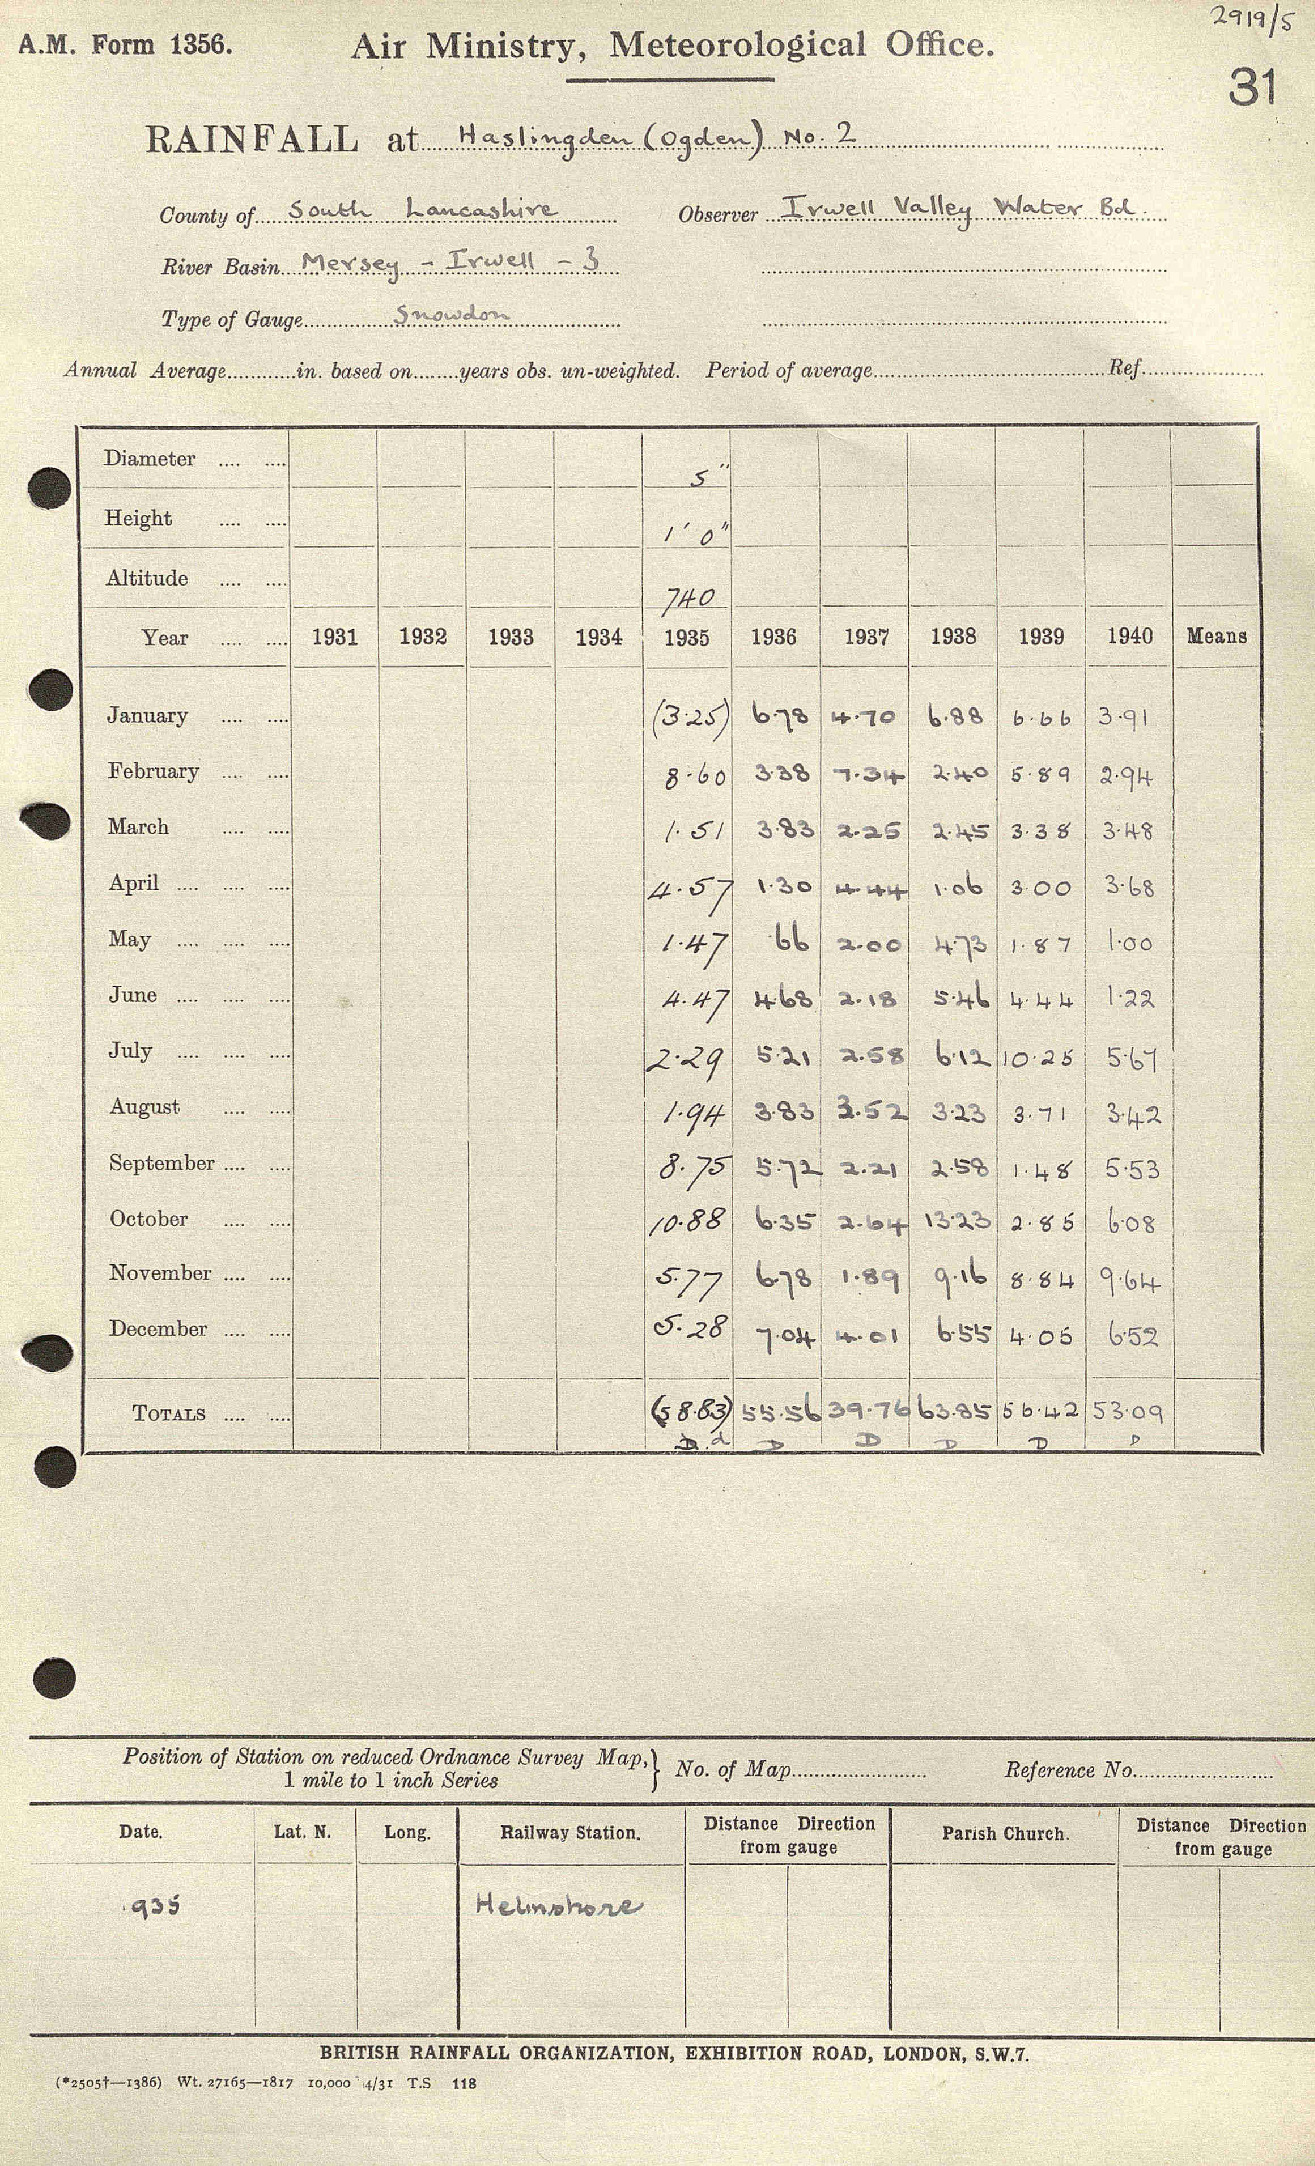 2919/5
A.M. Form 1356. Air Ministry, Meteorological Office.
31
RAINFALL at Haslingden (Ogden) No. 2
County of South Lancashire Observer Irwell Valley Water Bd.
River Basin Mersey - Irwell - 3
Type of Gauge Snowdon
Annual Average in. based on years obs. un-weighted. Period of average Ref.
Diameter 5"
Height 1' 0"
Altitude 740
Year 1931 1932 1933 1934 1935 1936 1937 1938 1939 1940 Means
January (3.25) 6.78 4.70 6.88 6.66 3.91
February 8.60 3.38 7.34 2.40 5.89 2.94
March 1.51 3.83 2.25 2.45 3.38 3.48
April 4.57 1.30 4.44 1.06 3.00 3.68
May 1.47 66 2.00 4.73 1.87 1.00
June 4.47 4.68 2.18 5.46 4.44 1.22
July 2.29 5.21 2.58 6.12 10.25 5.67
August 1.94 3.83 3.52 3.23 3.71 3.42
September 8.75 5.72 2.21 2.58 1.48 5.53
October 10.88 6.35 2.64 13.23 2.85 6.08
November 5.77 6.78 1.89 9.16 8.84 9.64
December 5.28 7.04 4.01 6.55 4.05 6.52
TOTALS (58.83) 55.56 39.76 63.85 56.42 53.09
D d D D D D D
Position of Station on reduced Ordnance Survey Map, } No. of Map Reference No.
1 mile to 1 inch Series
Date. Lat. N. Long. Railway Station. Distance Direction from gauge Parish Church. Distance Direction from gauge
935 Helmshore
BRITISH RAINFALL ORGANIZATION, EXHIBITION ROAD, LONDON, S.W.7.
(*2505†—1386) Wt. 27165—1817 10,000 4/31 T.S 118